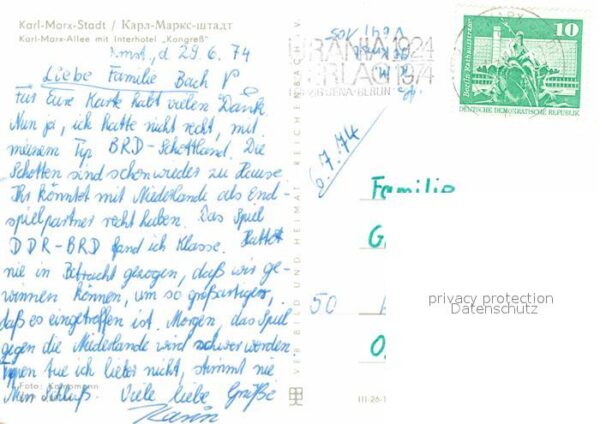 Karl-Marx-Stadt / Карл-Маркс-штадт
Karl-Marx-Allee mit Interhotel „Kongreß"
Kmst., d 29.6.74
Liebe Familie Bach!
Für Eure Karte habt vielen Dank.
Nun ja, ich hatte nicht recht, mit
meinem Tip BRD-Schottland. Die
Schotten sind schon wieder zu Hause
Ihr könntet mit Niederlande als End-
spielpartner recht haben. Das Spiel
DDR-BRD fand ich Klasse. Hattet
nie in Betracht gezogen, daß wir ge-
winnen können, um so großartiger,
daß es eingetroffen ist. Morgen, das Spiel
gegen die Niederlande wird schwer werden
Tippen tue ich lieber nicht, stimmt nie
Foto:
Nun Schluß. Viele liebe Grüße
Karin
VEB BILD UND HEIMAT REICHENBACH I. V.
III-26-1
1924
1974
JENA-BERLIN
10
Berlin, Rathausstraße
DEUTSCHE DEMOKRATISCHE REPUBLIK
6.7.74
Familie
G
50
O
privacy protection
Datenschutz